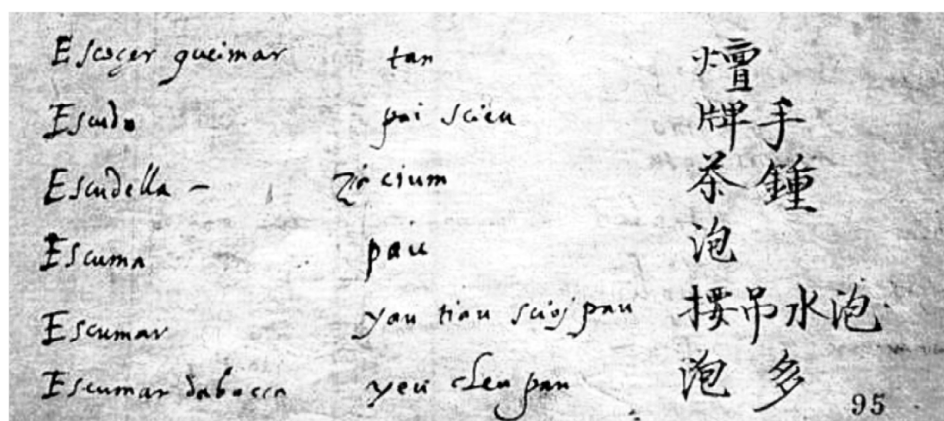 Escoçer queimar tan
Escudo pai scieu 牌手
Escudella cium 茶鍾
Escuma pau 泡
Escumar yau tiau scioj pau 吊水泡
Escumar dabocca yeu cheu pau 泡多
95